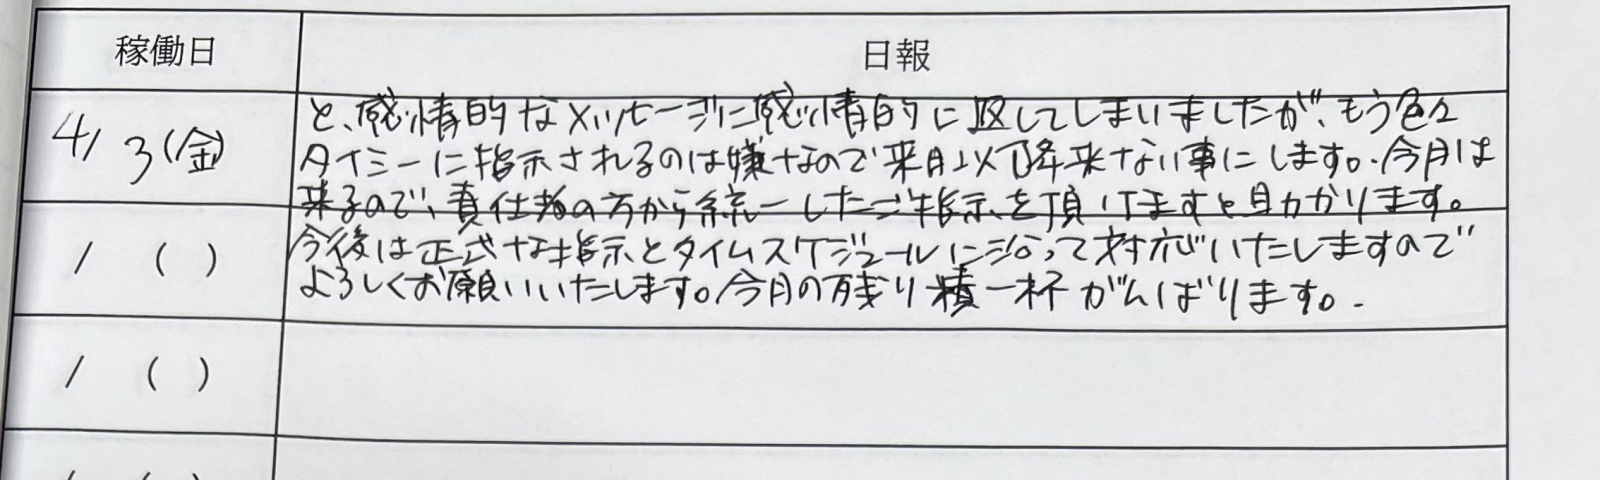 稼働日 日報
4/3(金)
と、感情的なメッセージに感情的に返してしまいましたが、もう色々
タイミーに指示されるのは嫌なので来月以降来ない事にします。今月は
来るので、責任者の方から統一したご指示を頂けますと助かります。
/ ( )
今後は正式な指示とタイムスケジュールに沿って対応いたしますので
よろしくお願いいたします。今月の残り精一杯がんばります。
/ ( )
/ ( )